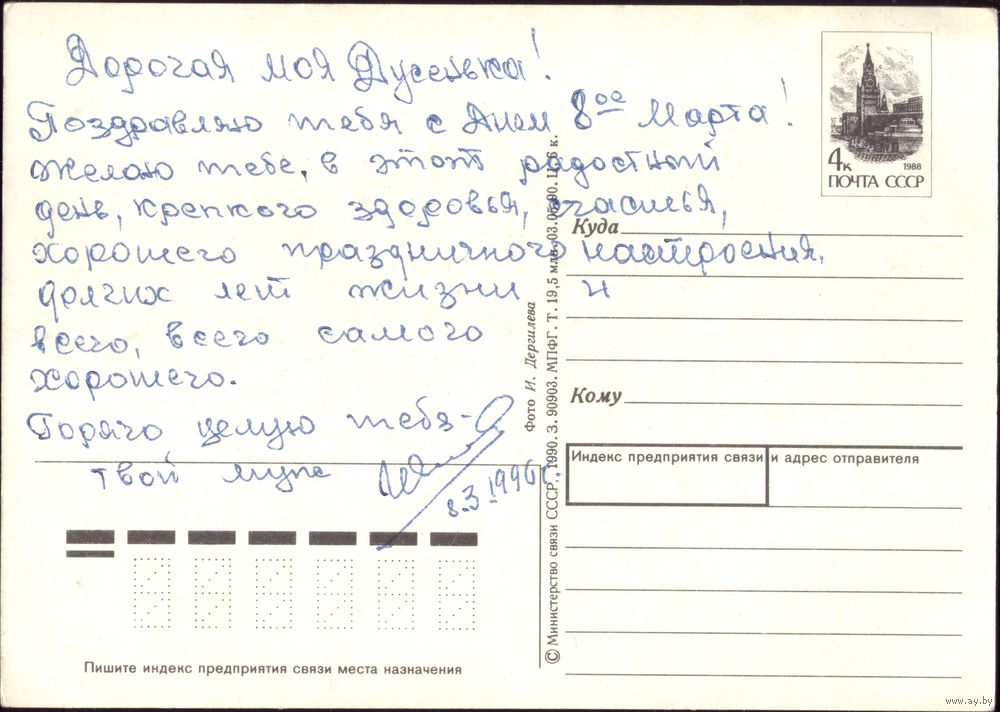 Дорогая моя Дусенька!
Поздравляю тебя с Днем 8ое Марта!
желаю тебе, в этот радостный
день, крепкого здоровья, счастья,
хорошего праздничного настроения,
долгих лет жизни и
всего, всего самого
хорошего.
Горячо целую тебя-
твой муж
8.3.1996г.
4к
1988
ПОЧТА СССР
Куда
Кому
Индекс предприятия связи и адрес отправителя
Фото И. Дергилева
© Министерство связи СССР, 1990. З. 90903. МПФГ. Т. 19,5 млн. 03.05.90. Ц. 6 к.
Пишите индекс предприятия связи места назначения
www.ay.by